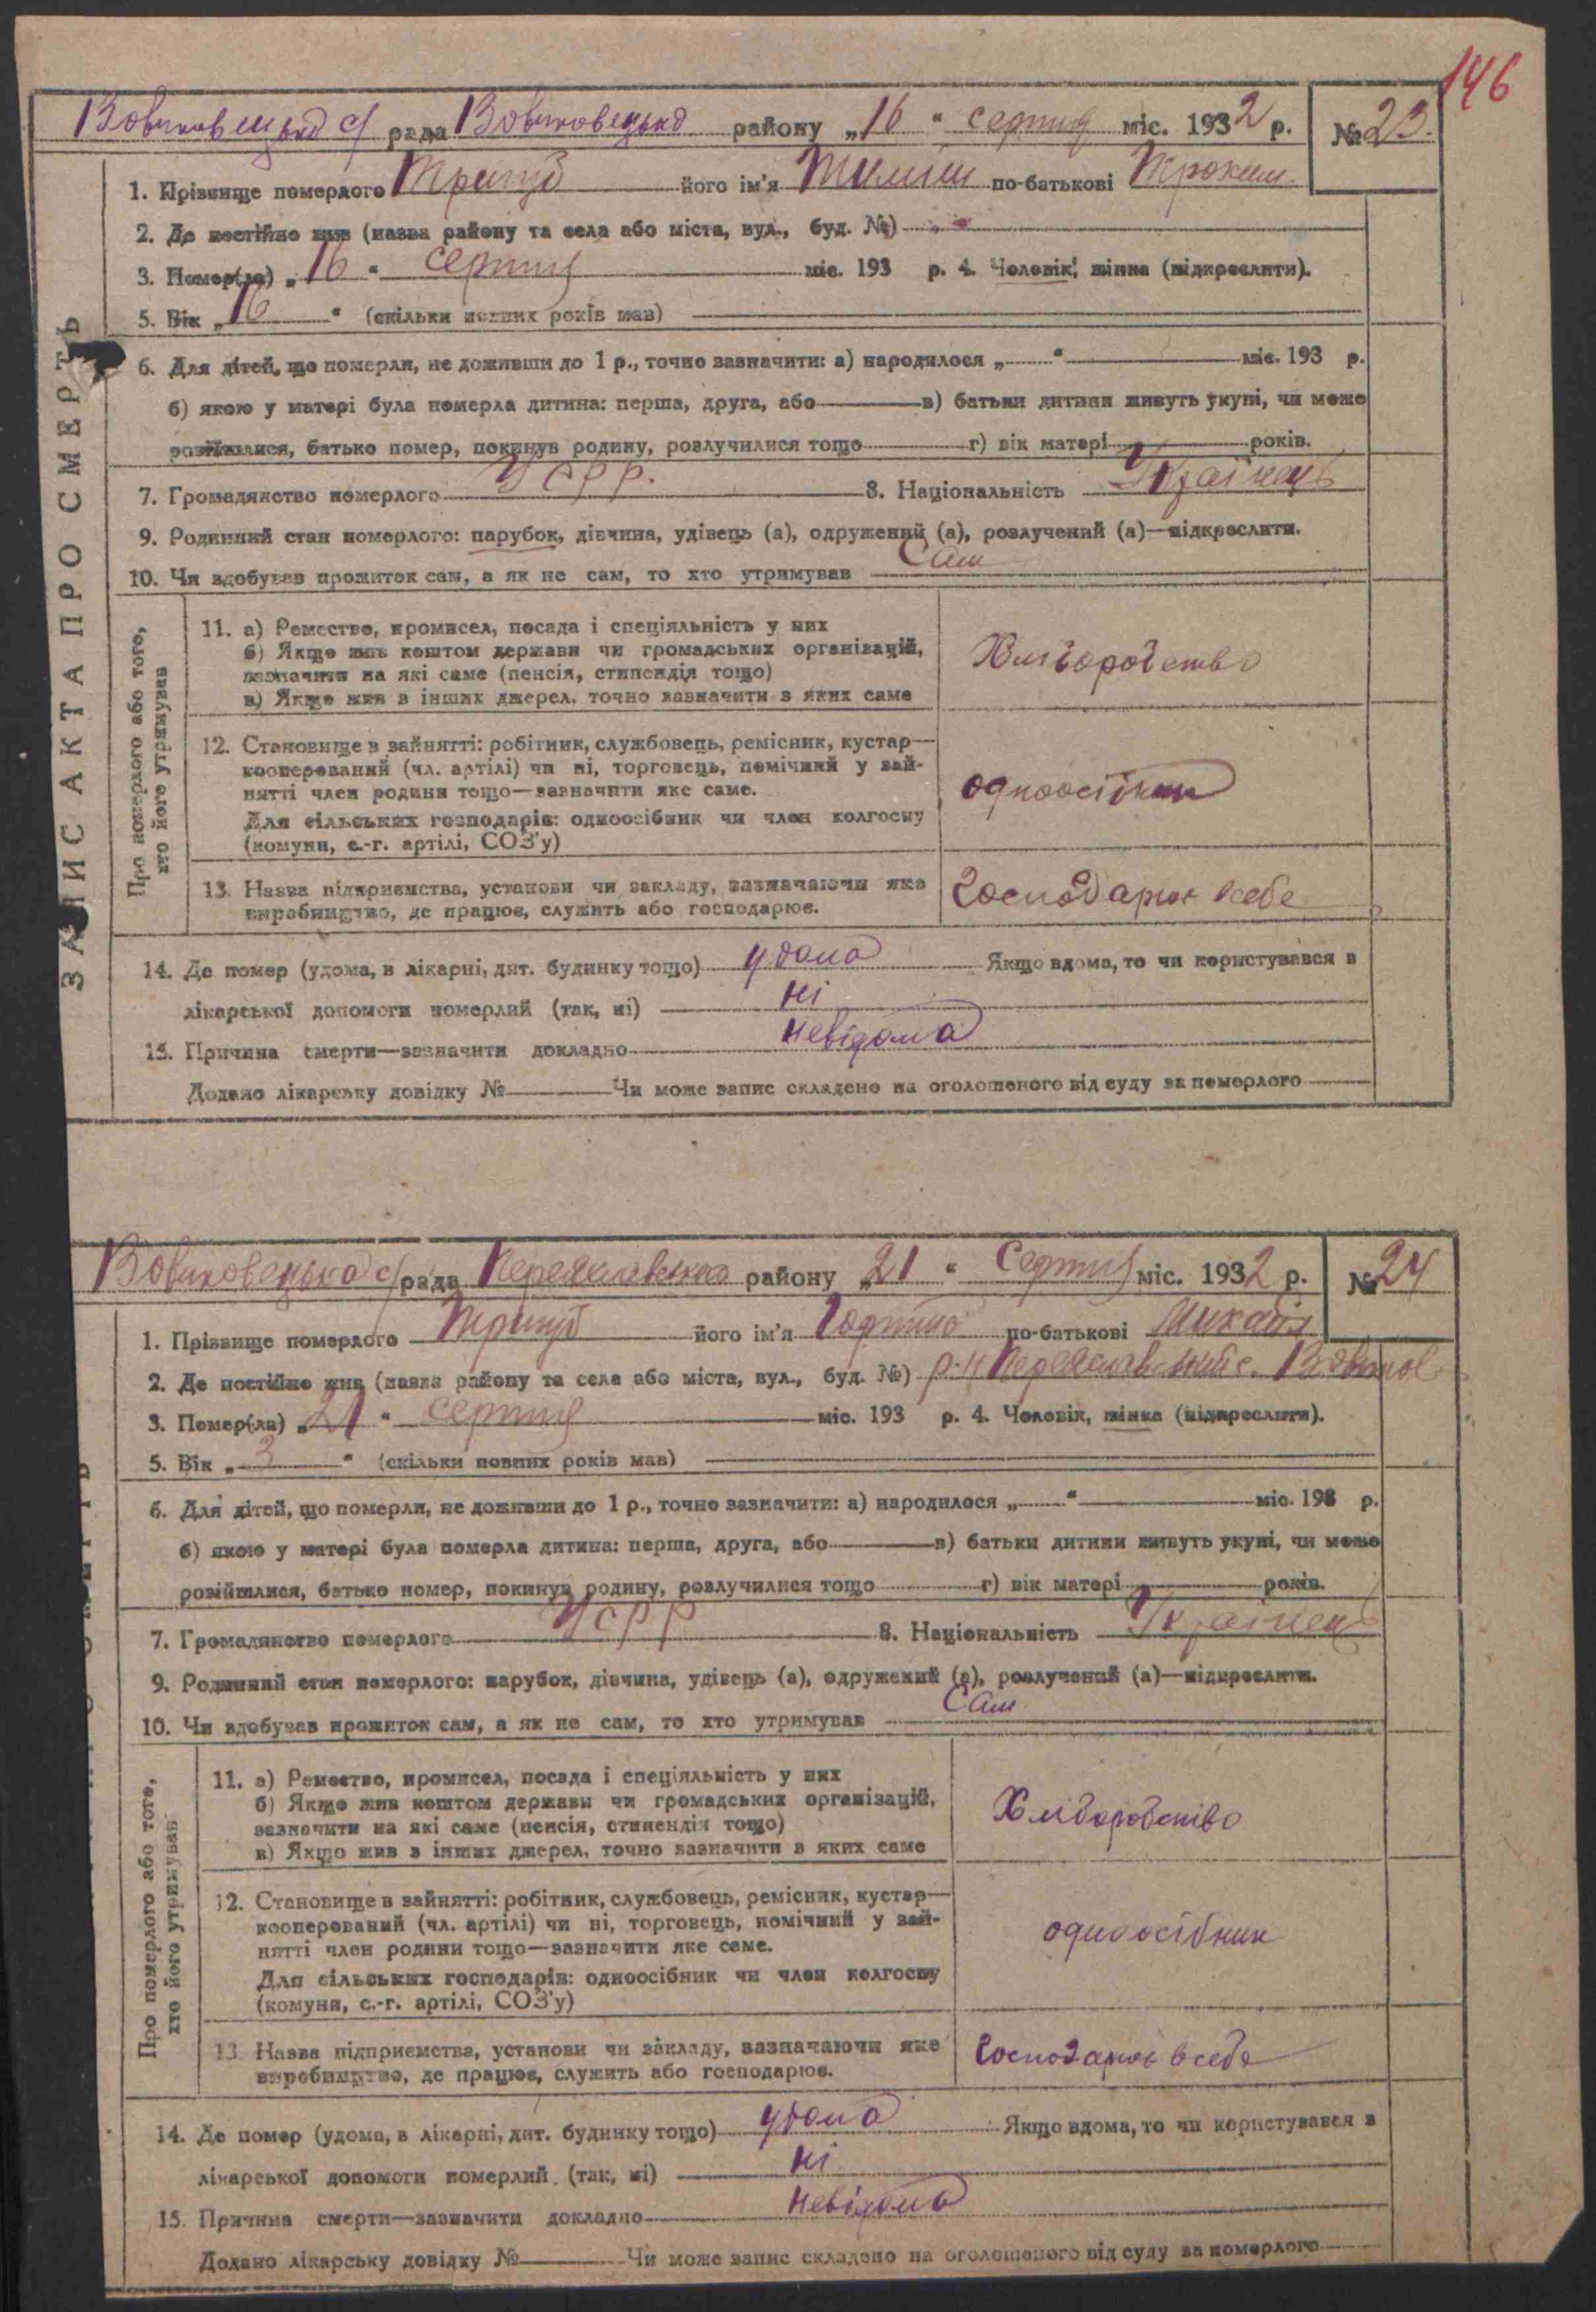 146
Вовчковецька с/ рада Вовчковецька району „16“ серпня міс. 1932 р. № 23.
1. Прізвище померлого Тригуб його ім'я по-батькові Трохим
2. Де постійно жив (назва району та села або міста, вул., буд. №)
3. Помер(ла) „16“ серпня міс. 193 р. 4. Чоловік, жінка (підкреслити).
5. Вік „16“ (скільки повних років мав)
6. Для дітей, що померли, не доживши до 1 р., точно зазначити: а) народилося „ “ міс. 193 р.
б) якою у матері була померла дитина: перша, друга, або в) батьки дитини живуть укупі, чи може
розійшлися, батько помер, покинув родину, розлучилися тощо г) вік матері років.
7. Громадянство померлого УСРР. 8. Національність Українець
9. Родинний стан померлого: парубок, дівчина, удівець (а), одружений (а), розлучений (а)—підкреслити.
10. Чи здобував прожиток сам, а як не сам, то хто утримував Сам
ЗАПИС АКТА ПРО СМЕРТЬ
Про померлого або того, хто його утримував
11. а) Ремество, промисел, посада і спеціяльність у них
б) Якщо жив коштом держави чи громадських організацій,
зазначити на які саме (пенсія, стипендія тощо)
в) Якщо жив з інших джерел, точно зазначити з яких саме
Хліборобство
12. Становище в зайнятті: робітник, службовець, ремісник, кустар—
кооперований (чл. артілі) чи ні, торговець, помічний у зай-
нятті член родини тощо—зазначити яке саме.
Для сільських господарів: одноосібник чи член колгоспу
(комуни, с.-г. артілі, СОЗ'у)
одноосібник
13. Назва підприємства, установи чи закладу, зазначаючи яке
виробництво, де працює, служить або господарює.
Господарює в себе
14. Де помер (удома, в лікарні, дит. будинку тощо) удома Якщо вдома, то чи користувався з
лікарської допомоги померлий (так, ні) ні
15. Причина смерти—зазначити докладно невідома
Додано лікарську довідку № Чи може запис складено на оголошеного від суду за померлого
Вовчковецька с/ рада Переяславського району „21“ Серпня міс. 1932 р. № 24
1. Прізвище померлого Тригуб його ім'я по-батькові Михайл
2. Де постійно жив (назва району та села або міста, вул., буд. №) р-н Переяславський с. Вовчков
3. Помер(ла) „21“ серпня міс. 193 р. 4. Чоловік, жінка (підкреслити).
5. Вік „3“ (скільки повних років мав)
6. Для дітей, що померли, не доживши до 1 р., точно зазначити: а) народилося „ “ міс. 193 р.
б) якою у матері була померла дитина: перша, друга, або в) батьки дитини живуть укупі, чи може
розійшлися, батько помер, покинув родину, розлучилися тощо г) вік матері років.
7. Громадянство померлого УСРР 8. Національність Українець
9. Родинний стан померлого: парубок, дівчина, удівець (а), одружений (а), розлучений (а)—підкреслити.
10. Чи здобував прожиток сам, а як не сам, то хто утримував Сам
Про померлого або того, хто його утримував
11. а) Ремество, промисел, посада і спеціяльність у них
б) Якщо жив коштом держави чи громадських організацій,
зазначити на які саме (пенсія, стипендія тощо)
в) Якщо жив з інших джерел, точно зазначити з яких саме
Хліборобство
12. Становище в зайнятті: робітник, службовець, ремісник, кустар—
кооперований (чл. артілі) чи ні, торговець, помічний у зай-
нятті член родини тощо—зазначити яке саме.
Для сільських господарів: одноосібник чи член колгоспу
(комуни, с.-г. артілі, СОЗ'у)
одноосібник
13. Назва підприємства, установи чи закладу, зазначаючи яке
виробництво, де працює, служить або господарює.
Господарює в себе
14. Де помер (удома, в лікарні, дит. будинку тощо) удома Якщо вдома, то чи користувався з
лікарської допомоги померлий (так, ні) ні
15. Причина смерти—зазначити докладно невідома
Додано лікарську довідку № Чи може запис складено на оголошеного від суду за померлого